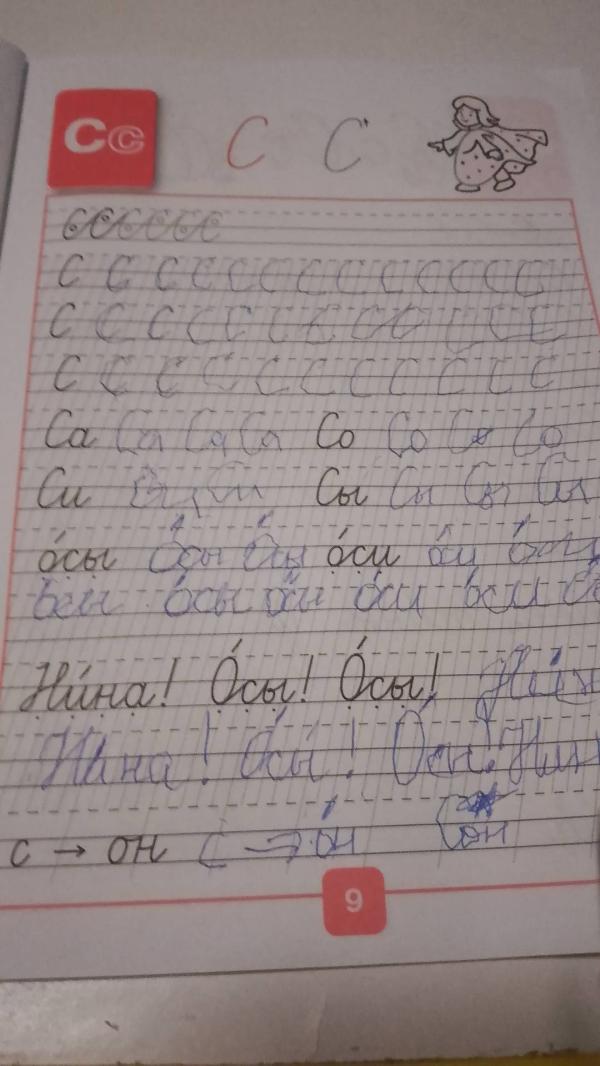 Сс С С
С С С С С С
С С С С С С С С С С С С С
С С С С С С С С С С С С
С С С С С С С С С С С
Са Са Са Са Со Со Со Со
Си Си Си Сы Сы Сы Сы
о́сы о́сы о́сы о́си о́си о́си
о́сы о́си о́си о́си
Ни́на! О́сы! О́сы! Ни́н
Ни́на! О́сы! О́сы! Нин
с → он с → о́н он
9